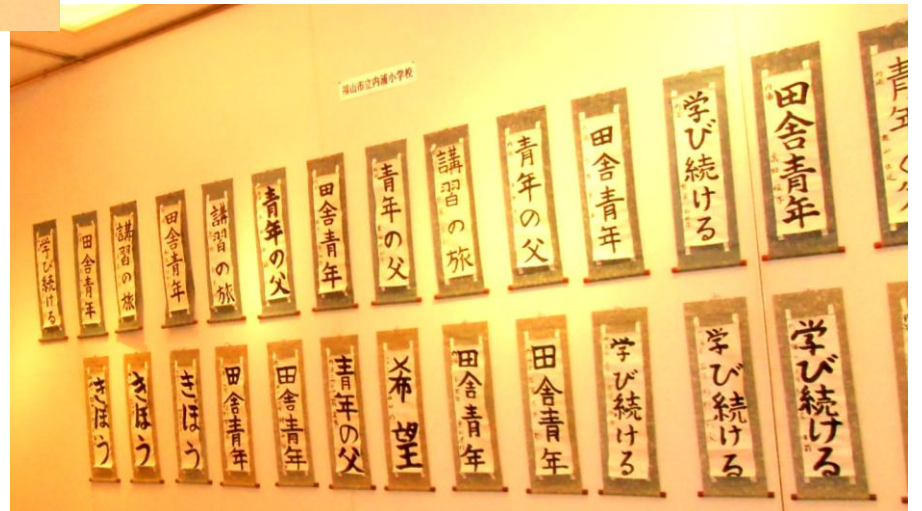 福山市立内浦小学校
学び続ける
田舎青年
講習の旅
田舎青年
講習の旅
青年の父
田舎青年
青年の父
講習の旅
青年の父
田舎青年
学び続ける
田舎青年
青年の父
きぼう
きぼう
きぼう
田舎青年
田舎青年
青年の父
希望
田舎青年
田舎青年
学び続ける
学び続ける
学び続ける